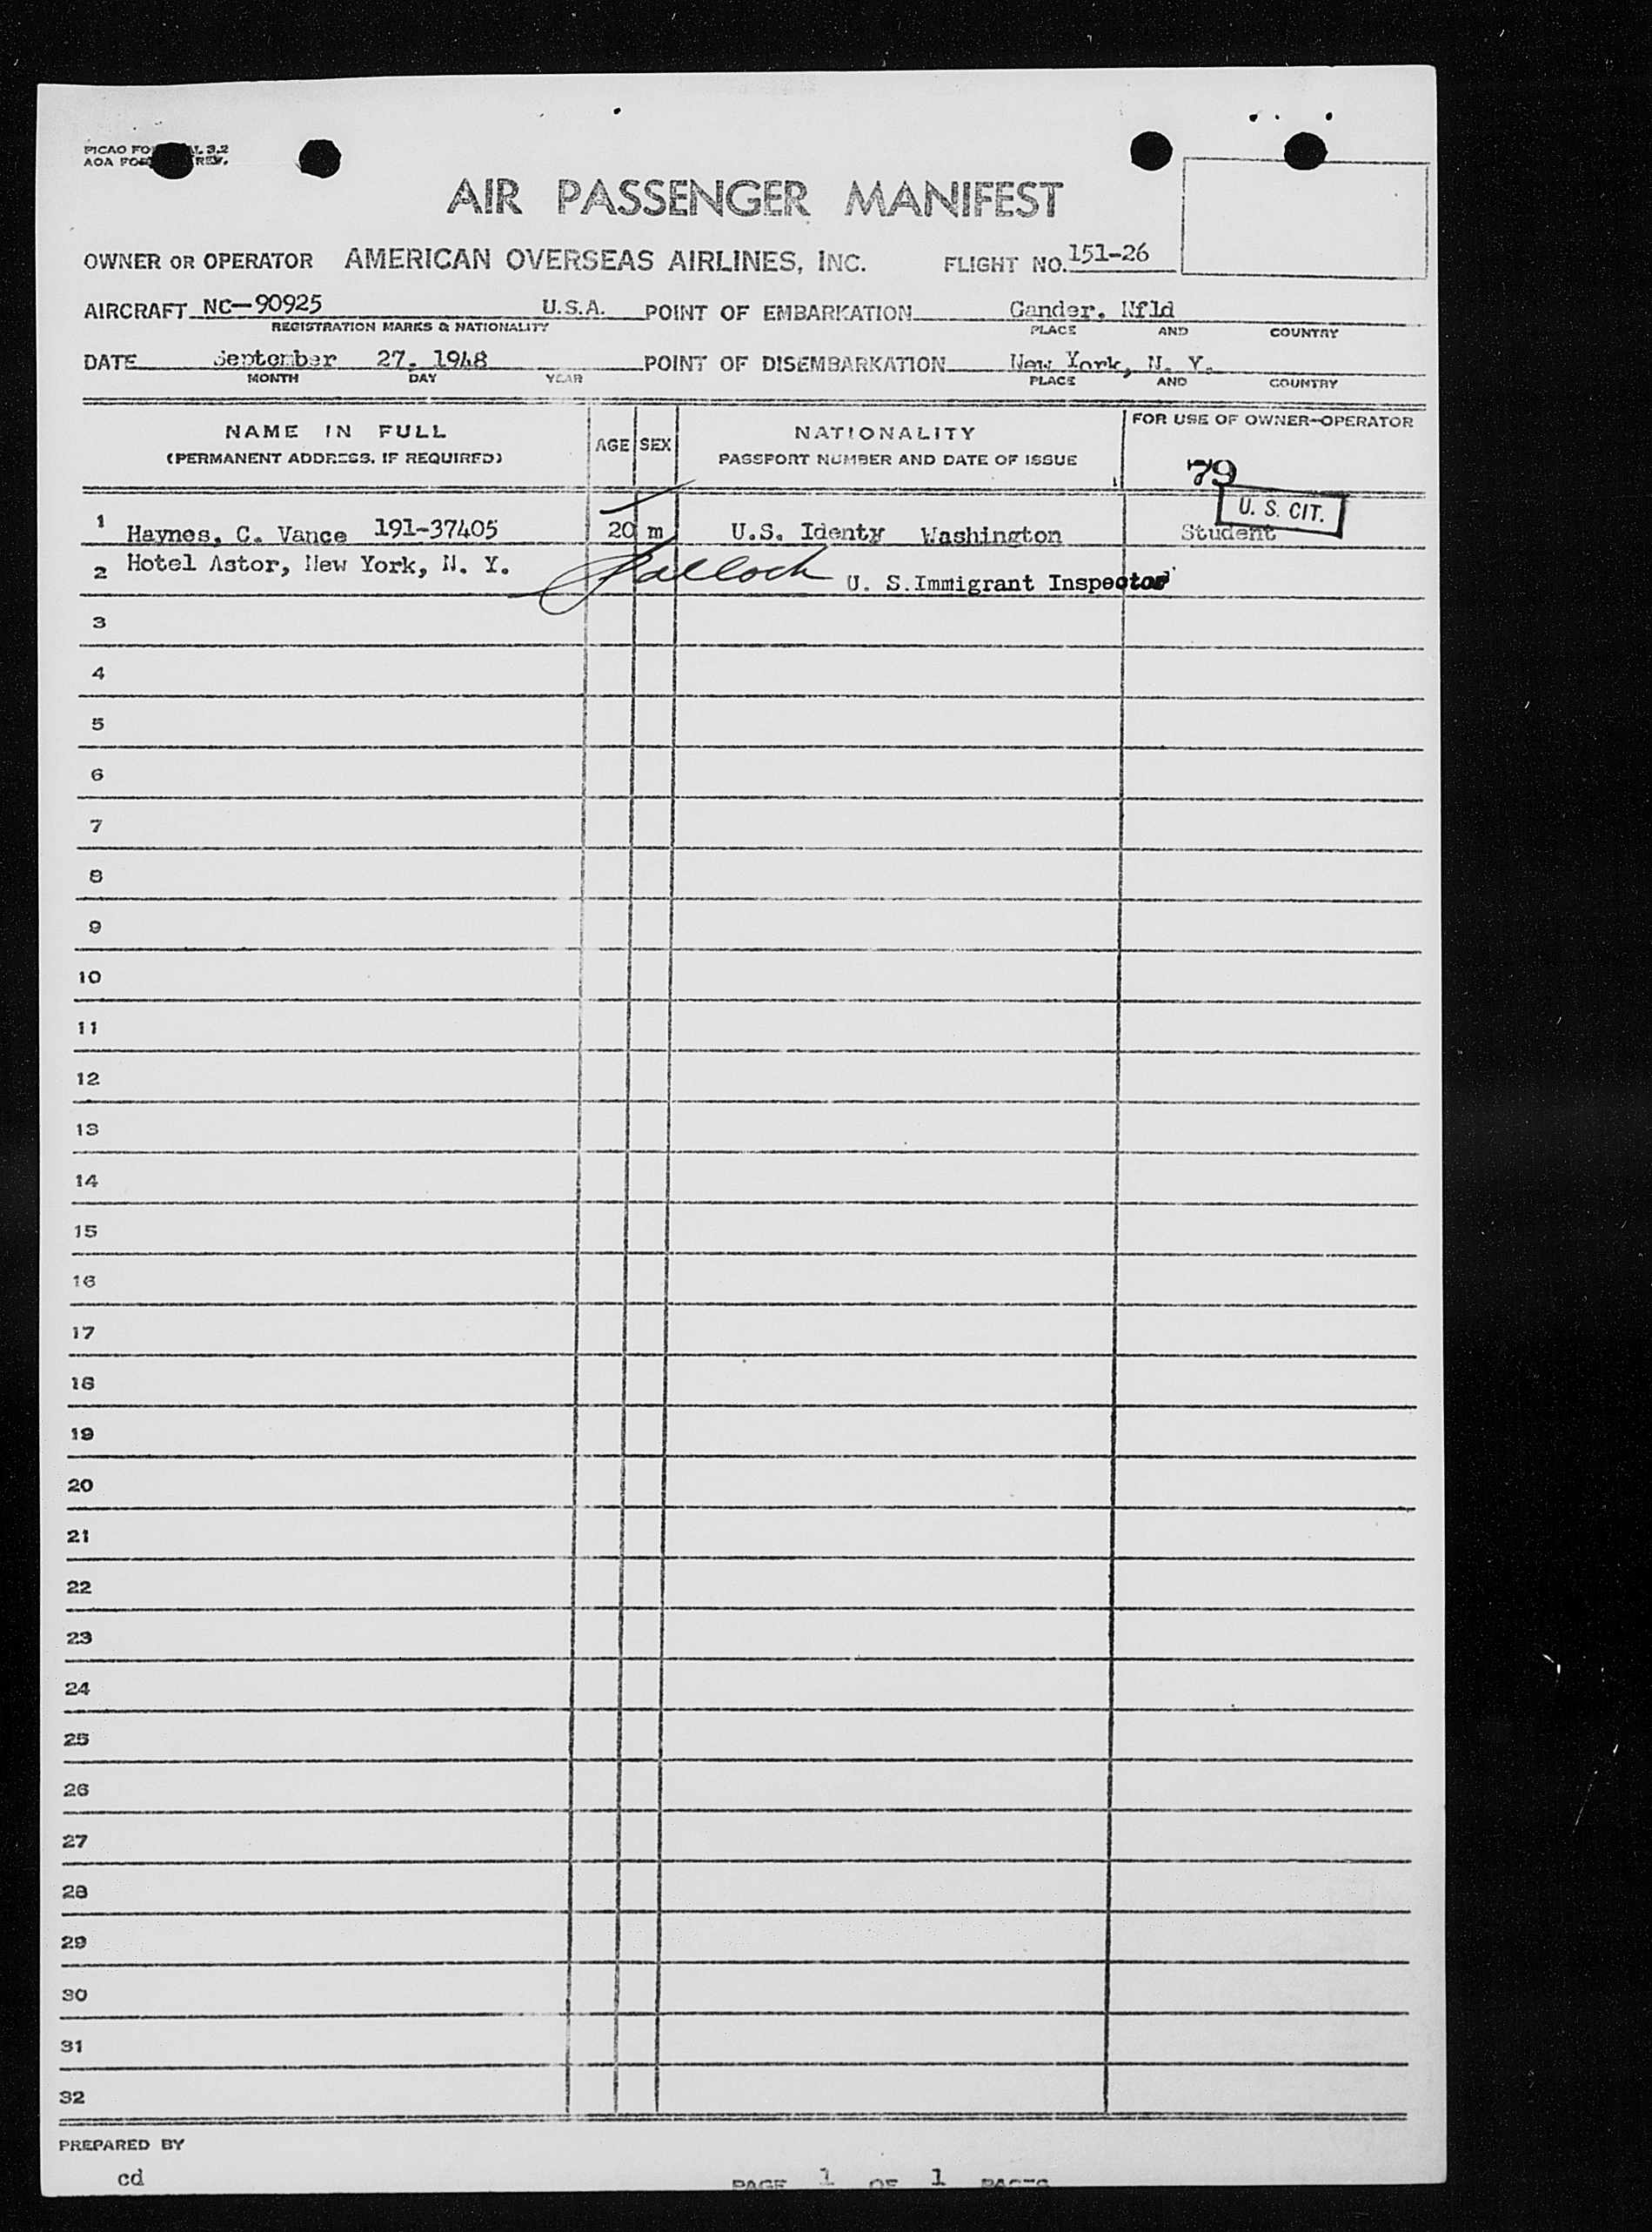 PICAO FO 3.2
AOA REV.
AIR PASSENGER MANIFEST
OWNER OR OPERATOR AMERICAN OVERSEAS AIRLINES, INC. FLIGHT NO. 151-26
AIRCRAFT NC-90925 U.S.A. POINT OF EMBARKATION Gander, Nfld
REGISTRATION MARKS & NATIONALITY PLACE AND COUNTRY
DATE September 27, 1948 POINT OF DISEMBARKATION New York, N. Y.
MONTH DAY YEAR PLACE AND COUNTRY
NAME IN FULL AGE SEX NATIONALITY FOR USE OF OWNER-OPERATOR
(PERMANENT ADDRESS, IF REQUIRED) PASSPORT NUMBER AND DATE OF ISSUE
79
U. S. CIT.
1 Haynes, C. Vance 191-37405 20 m U.S. Identy Washington Student
2 Hotel Astor, New York, N. Y. U. S.Immigrant Inspector
3
4
5
6
7
8
9
10
11
12
13
14
15
16
17
18
19
20
21
22
23
24
25
26
27
28
29
30
31
32
PREPARED BY
cd PAGE 1 OF 1 PAGES